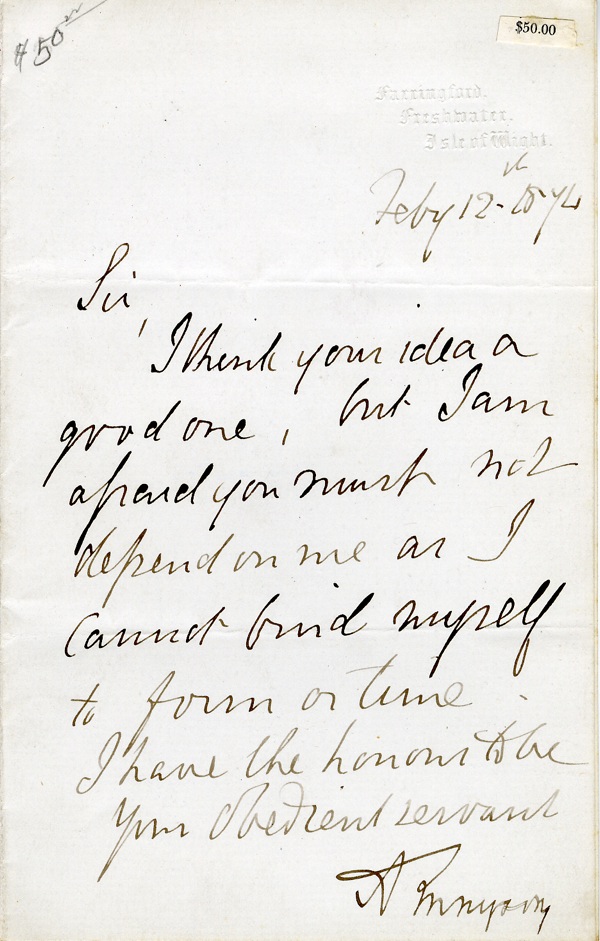 $50.00
$50.00
Farringford.
Freshwater.
Isle of Wight.
Feby 12th 1874
Sir,
I think your idea a
good one, but I am
afraid you must not
depend on me as I
cannot bind myself
to form or time.
I have the honour to be
Your obedient servant
A Tennyson